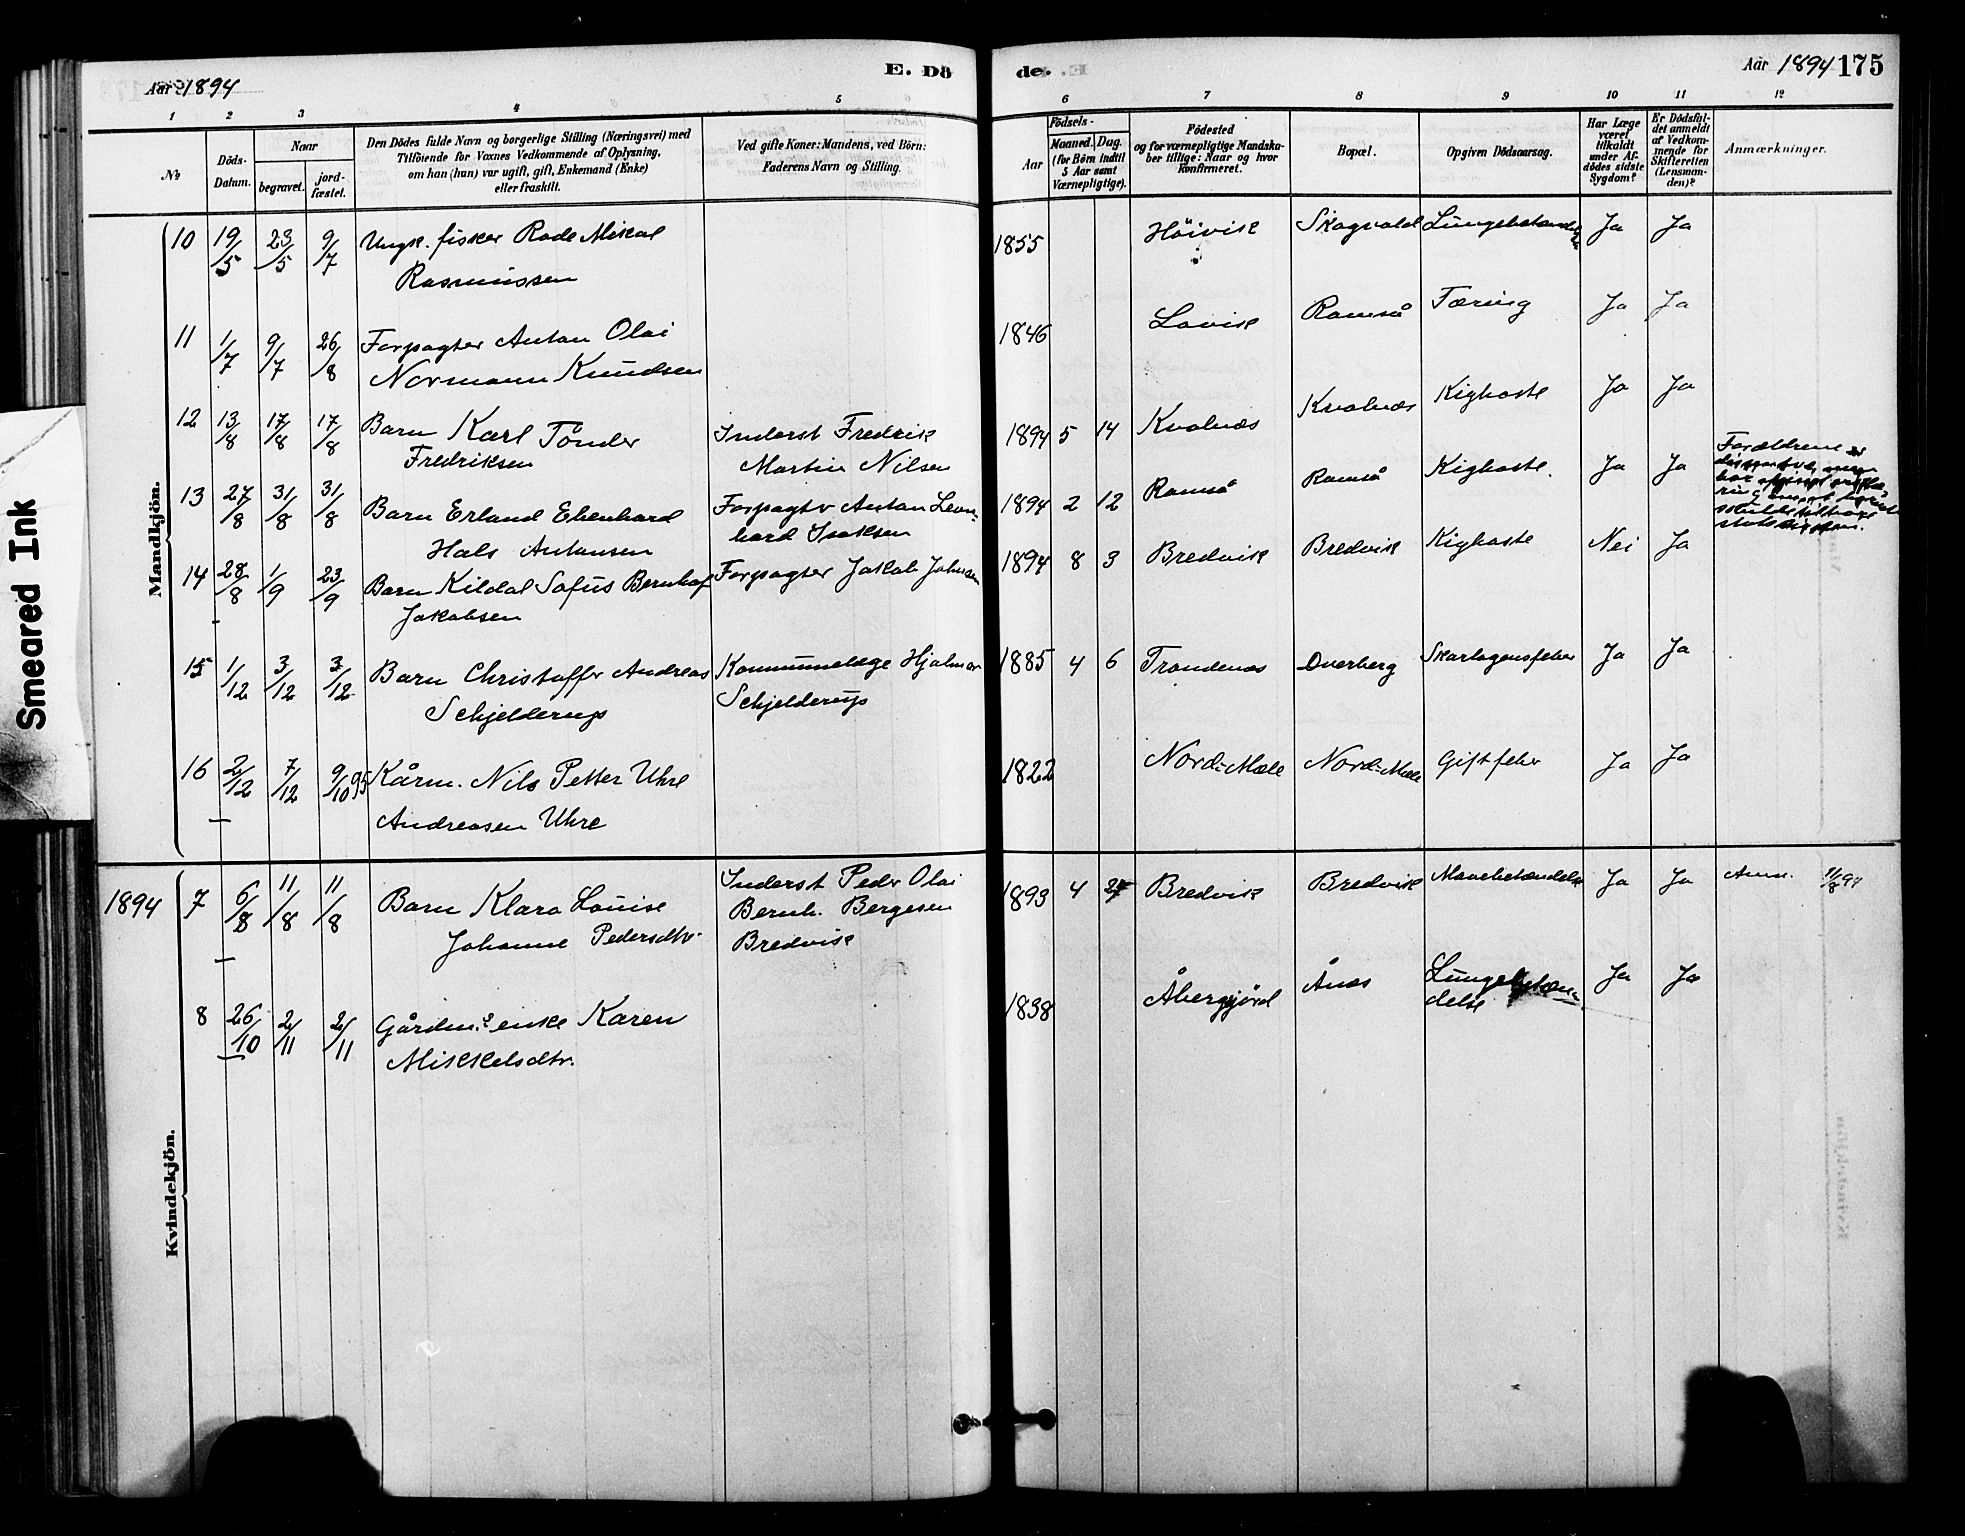 Smeared Ink
Aar 1894
E. Dö
1 2 3 4 5
No
Döds-
Datum.
Naar
begravet. jord-
fæstet.
Den Dödes fulde Navn og borgerlige Stilling (Næringsvei) med
Tilföiende for Voxnes Vedkommende af Oplysning,
om han (hun) var ugift, gift, Enkemand (Enke)
eller fraskilt.
Ved gifte Koner: Mandens, ved Börn:
Faderens Navn og Stilling.
Mandkjön.
10 19/5 23/5 9/7 Ungk. fisker Rade Mikal
Rasmussen
11 1/7 9/7 26/8 Forpagter Antan Olai
Normann Knudsen
12 13/8 17/8 17/8 Barn Karl Tönder Inderst Fredrik
Fredriksen Martin Nilsen
13 27/8 31/8 31/8 Barn Erland Ebenhard Forpagtr Antan Leon-
Hals Antansen hard Isaksen
14 28/8 1/9 23/9 Barn Kildal Sofus Bernhof Forpagter Jakob Johnsen
Jakobsen
15 1/12 3/12 3/12 Barn Christoffer Andreas Kommunelæge Hjalmar
Schjelderup Schjelderup
16 2/12 7/12 9/10 95 Kårm. Nils Petter Uhre
Andreasen Uhre
Kvindekjön.
1894 7 6/8 11/8 11/8 Barn Klara Louise Inderst Peder Olai
Johanne Pedersdtr. Bernh. Bergesen
Bredvik
8 26/10 2/11 2/11 Gårdm.s enke Karen
Mikkelsdtr.
de.
Aar 1894 175
6 7 8 9 10 11 12
Födsels-
Aar
Maaned. Dag.
(for Börn indtil
5 Aar samt
Værnepligtige).
Födested
og for værnepligtige Mandska-
ber tillige: Naar og hvor
konfirmeret.
Bopæl.
Opgiven Dödsaarsag.
Har Læge
været
tilkaldt
under Af-
dödes sidste
Sygdom?
Er Dödsfal-
det anmeldt
af Vedkom-
mende for
Skifteretten
(Lensman-
den)?
Anmærkninger.
1855 Höivik Skogvold Lungebetændelse Ja Ja
1846 Lovik Ramså Tæring Ja Ja
1894 5 14 Kvalnæs Kvalnæs Kighoste Ja Ja
1894 2 12 Ramså Ramså Kighoste. Ja Ja Forældrene
1894 8 3 Bredvik Bredvik Kighoste Nei Ja
1885 4 6 Trondenæs Dverberg Skarlagensfeber Ja Ja
1822 Nord-Mæle Nord-Mæle Giftfeber Ja Ja
1893 4 Bredvik Bredvik Mavebetændelse Ja Ja Anm. 11/8 94
1838 Åbergjörd Ånæs Lungebetæn- Ja Ja
delse